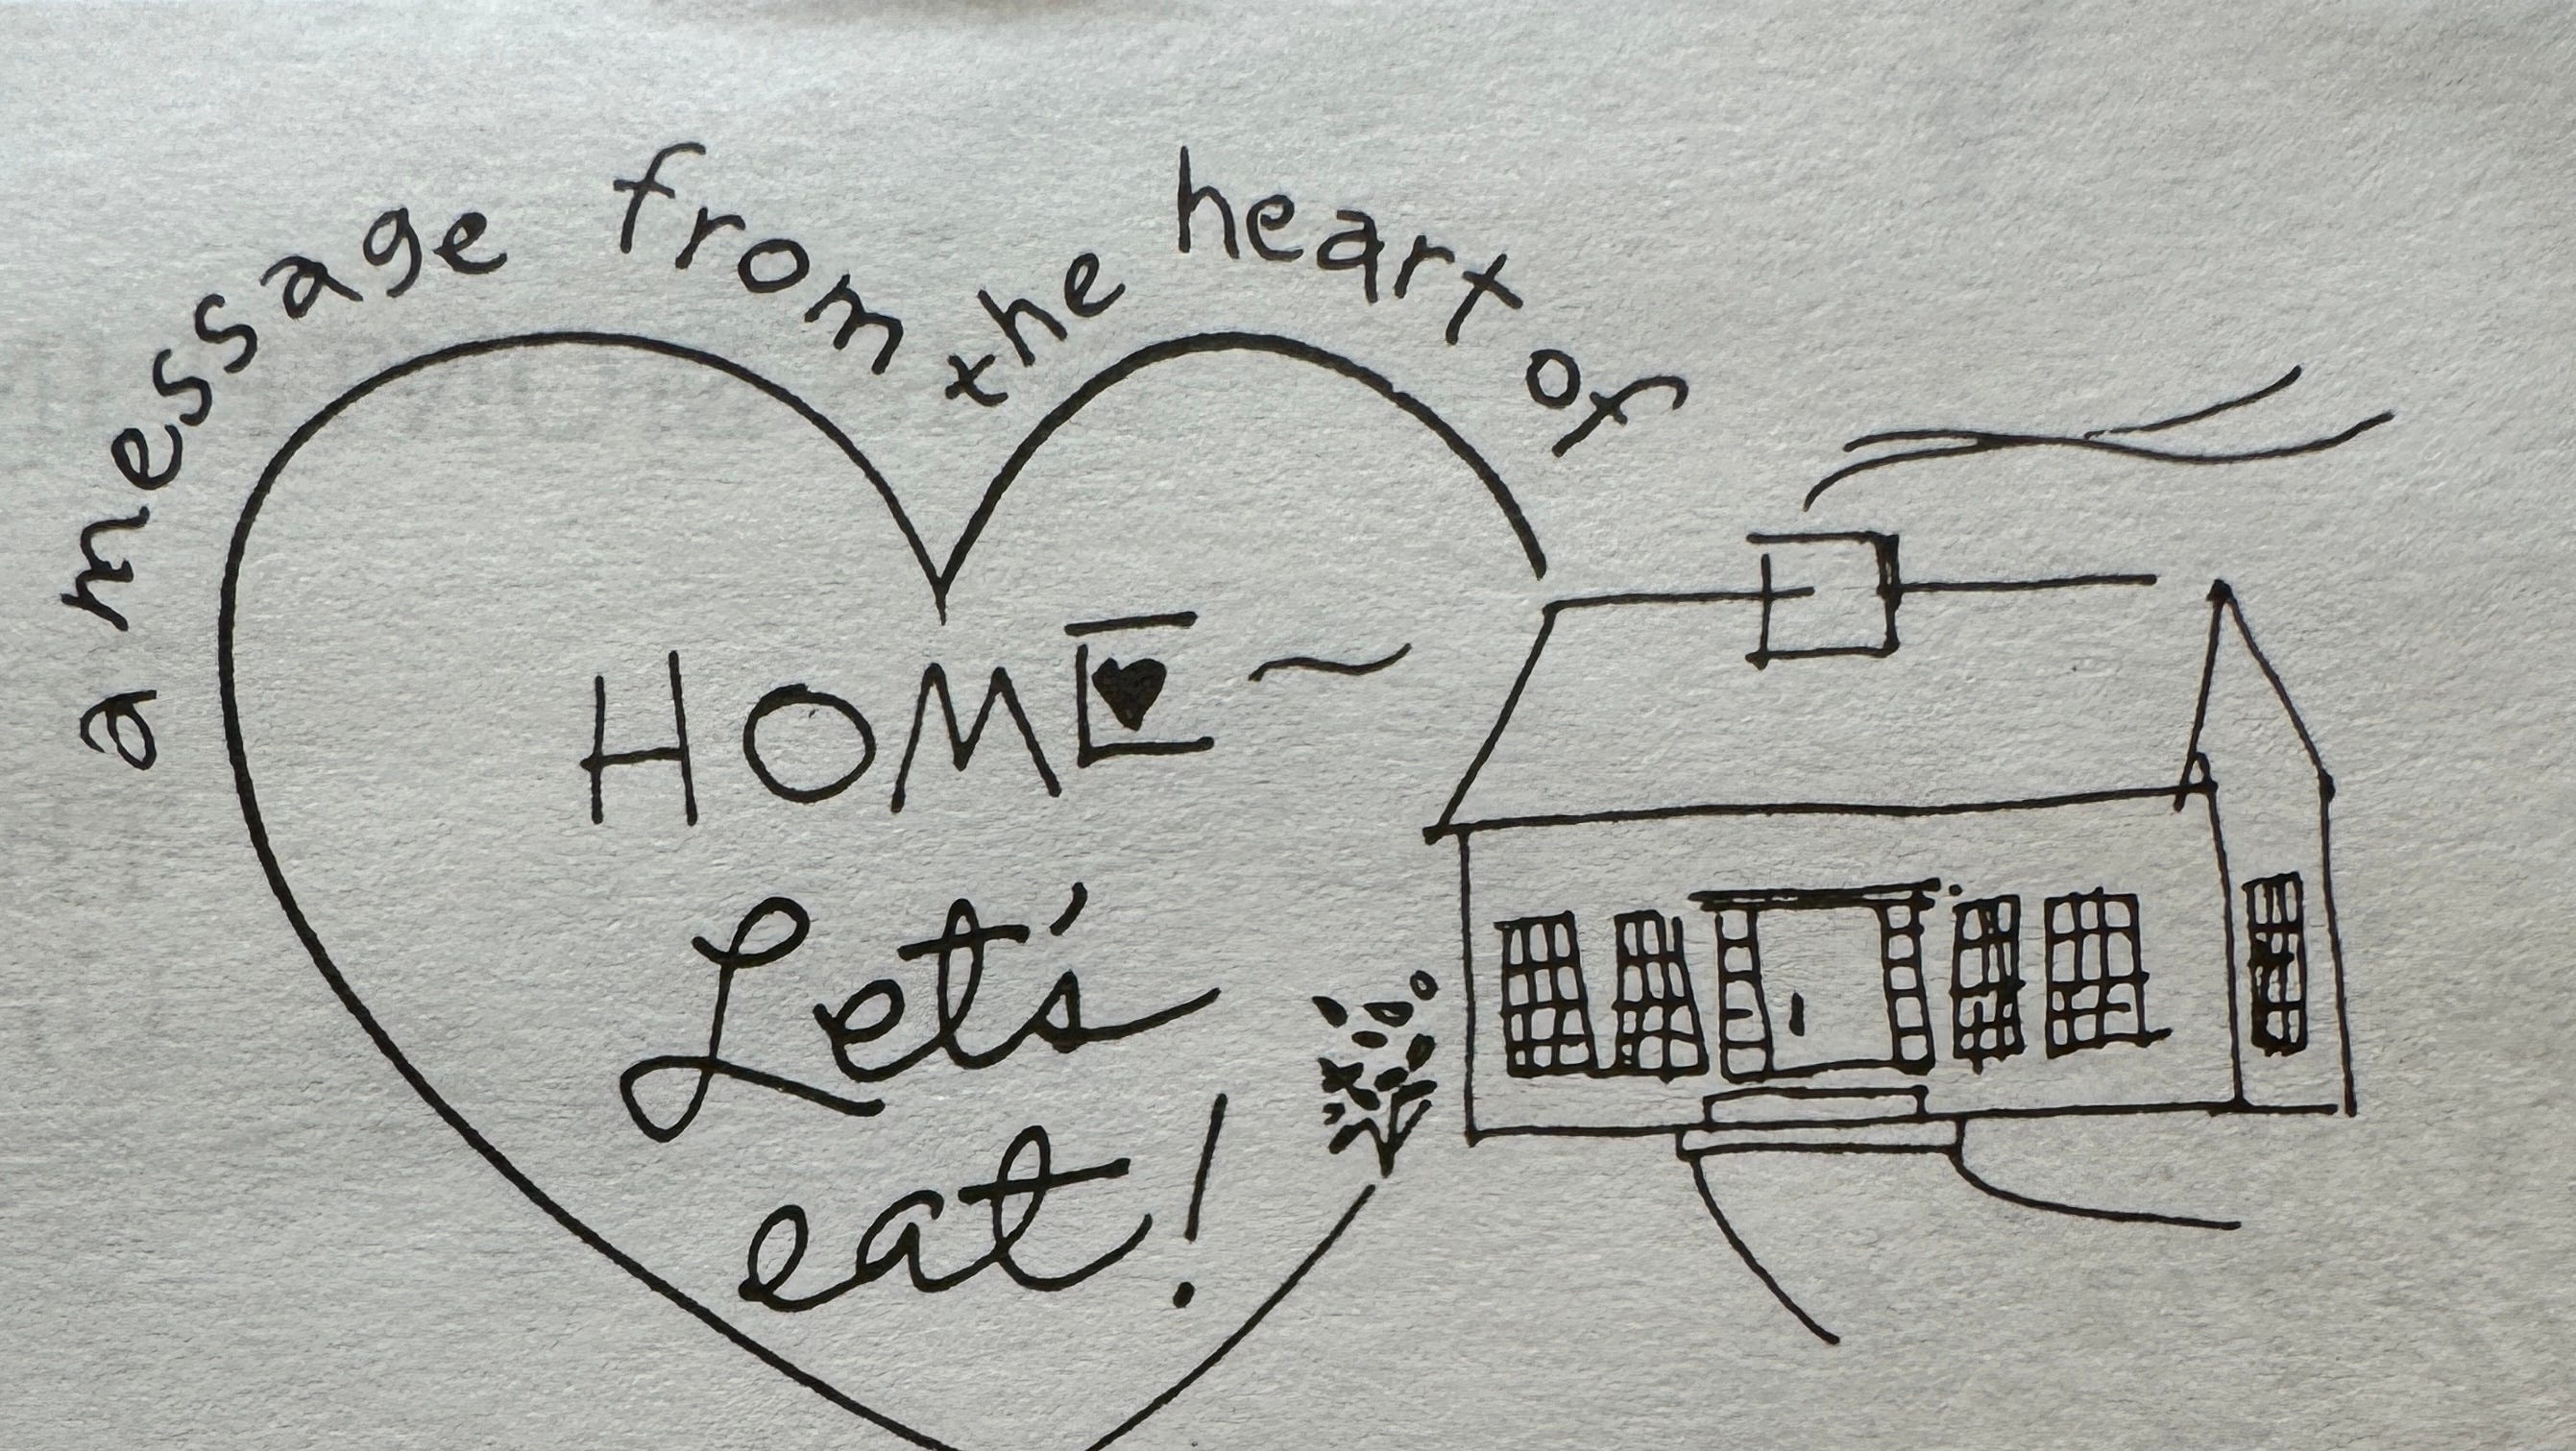 a message from the heart of
HOME ~
Let's
eat!